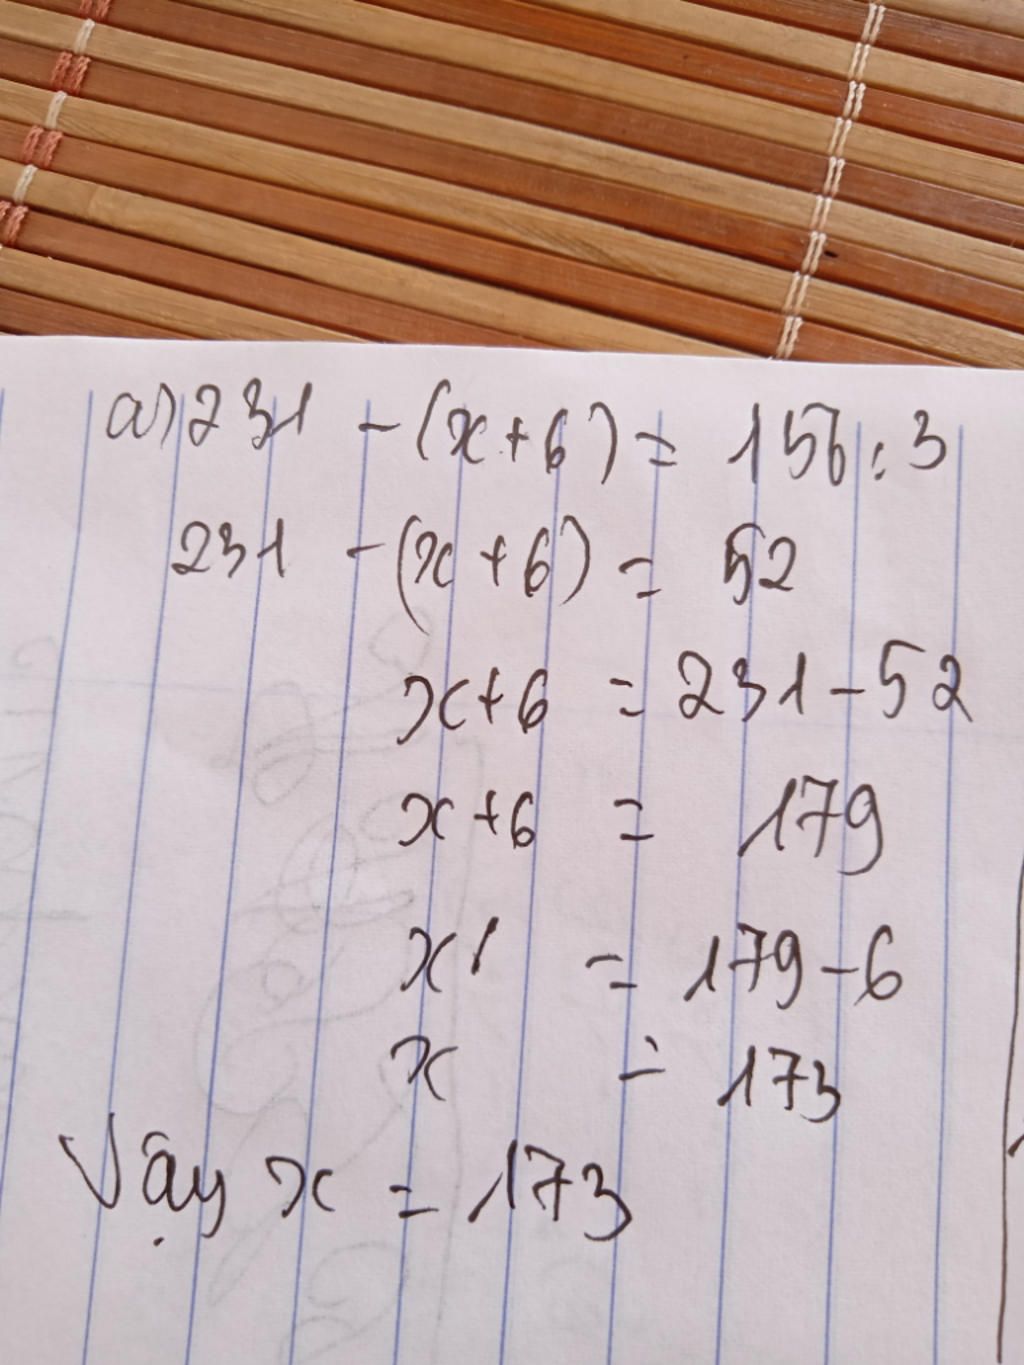 a) 231 - (x + 6) = 156 : 3
231 - (x + 6) = 52
x + 6 = 231 - 52
x + 6 = 179
x = 179 - 6
x = 173
Vậy x = 173